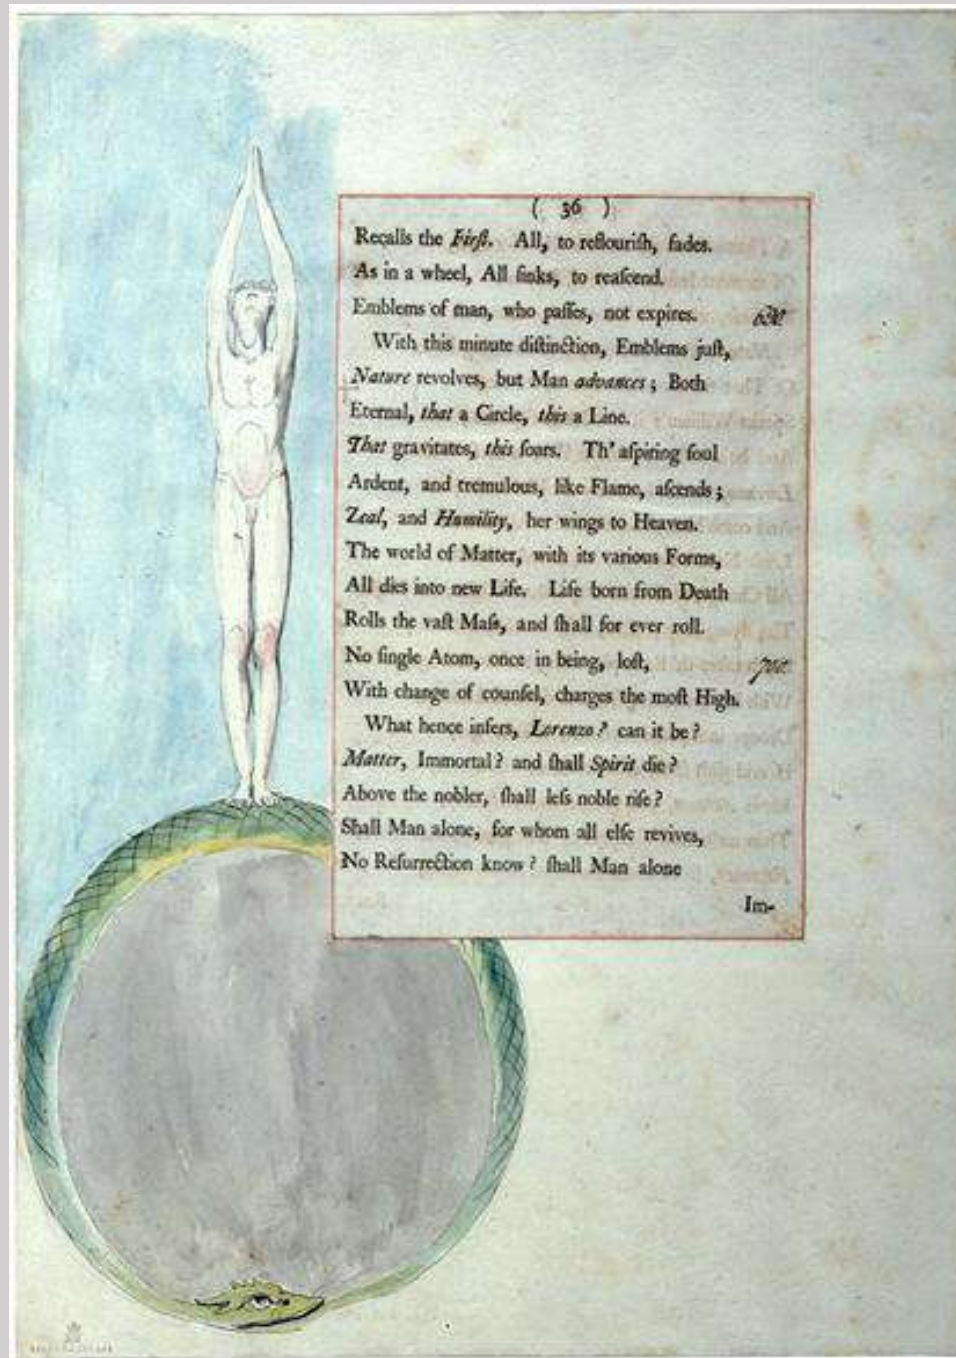 ( 36 )
Recalls the Firſt. All, to reflouriſh, fades.
As in a wheel, All ſinks, to reaſcend.
Emblems of man, who paſſes, not expires.
With this minute diſtinction, Emblems juſt,
Nature revolves, but Man advances; Both
Eternal, that a Circle, this a Line.
That gravitates, this ſoars. Th' aſpiring ſoul
Ardent, and tremulous, like Flame, aſcends;
Zeal, and Humility, her wings to Heaven.
The world of Matter, with its various Forms,
All dies into new Life. Life born from Death
Rolls the vaſt Maſs, and ſhall for ever roll.
No ſingle Atom, once in being, loſt, 700
With change of counſel, charges the moſt High.
What hence infers, Lorenzo? can it be?
Matter, Immortal? and ſhall Spirit die?
Above the nobler, ſhall leſs noble riſe?
Shall Man alone, for whom all elſe revives,
No Reſurrection know? ſhall Man alone
Im-